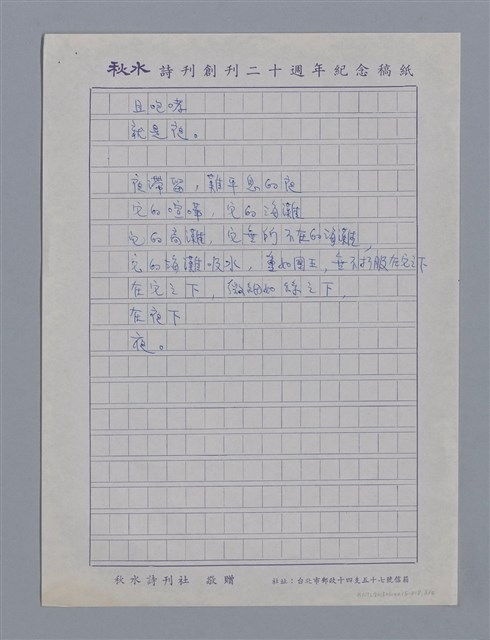 秋水 詩刊創刊二十週年紀念稿紙
且咆哮
就是夜。
夜滯留，難平息的夜
它的喧嘩，它的海灘
它的高灘，它無所不在的海灘，
它的海灘吸水，重如國王，無不折服在它之下
在它之下，微細如絲之下，
在夜下
夜。
秋水詩刊社 敬贈
社址：台北市郵政十四支五十七號信箱